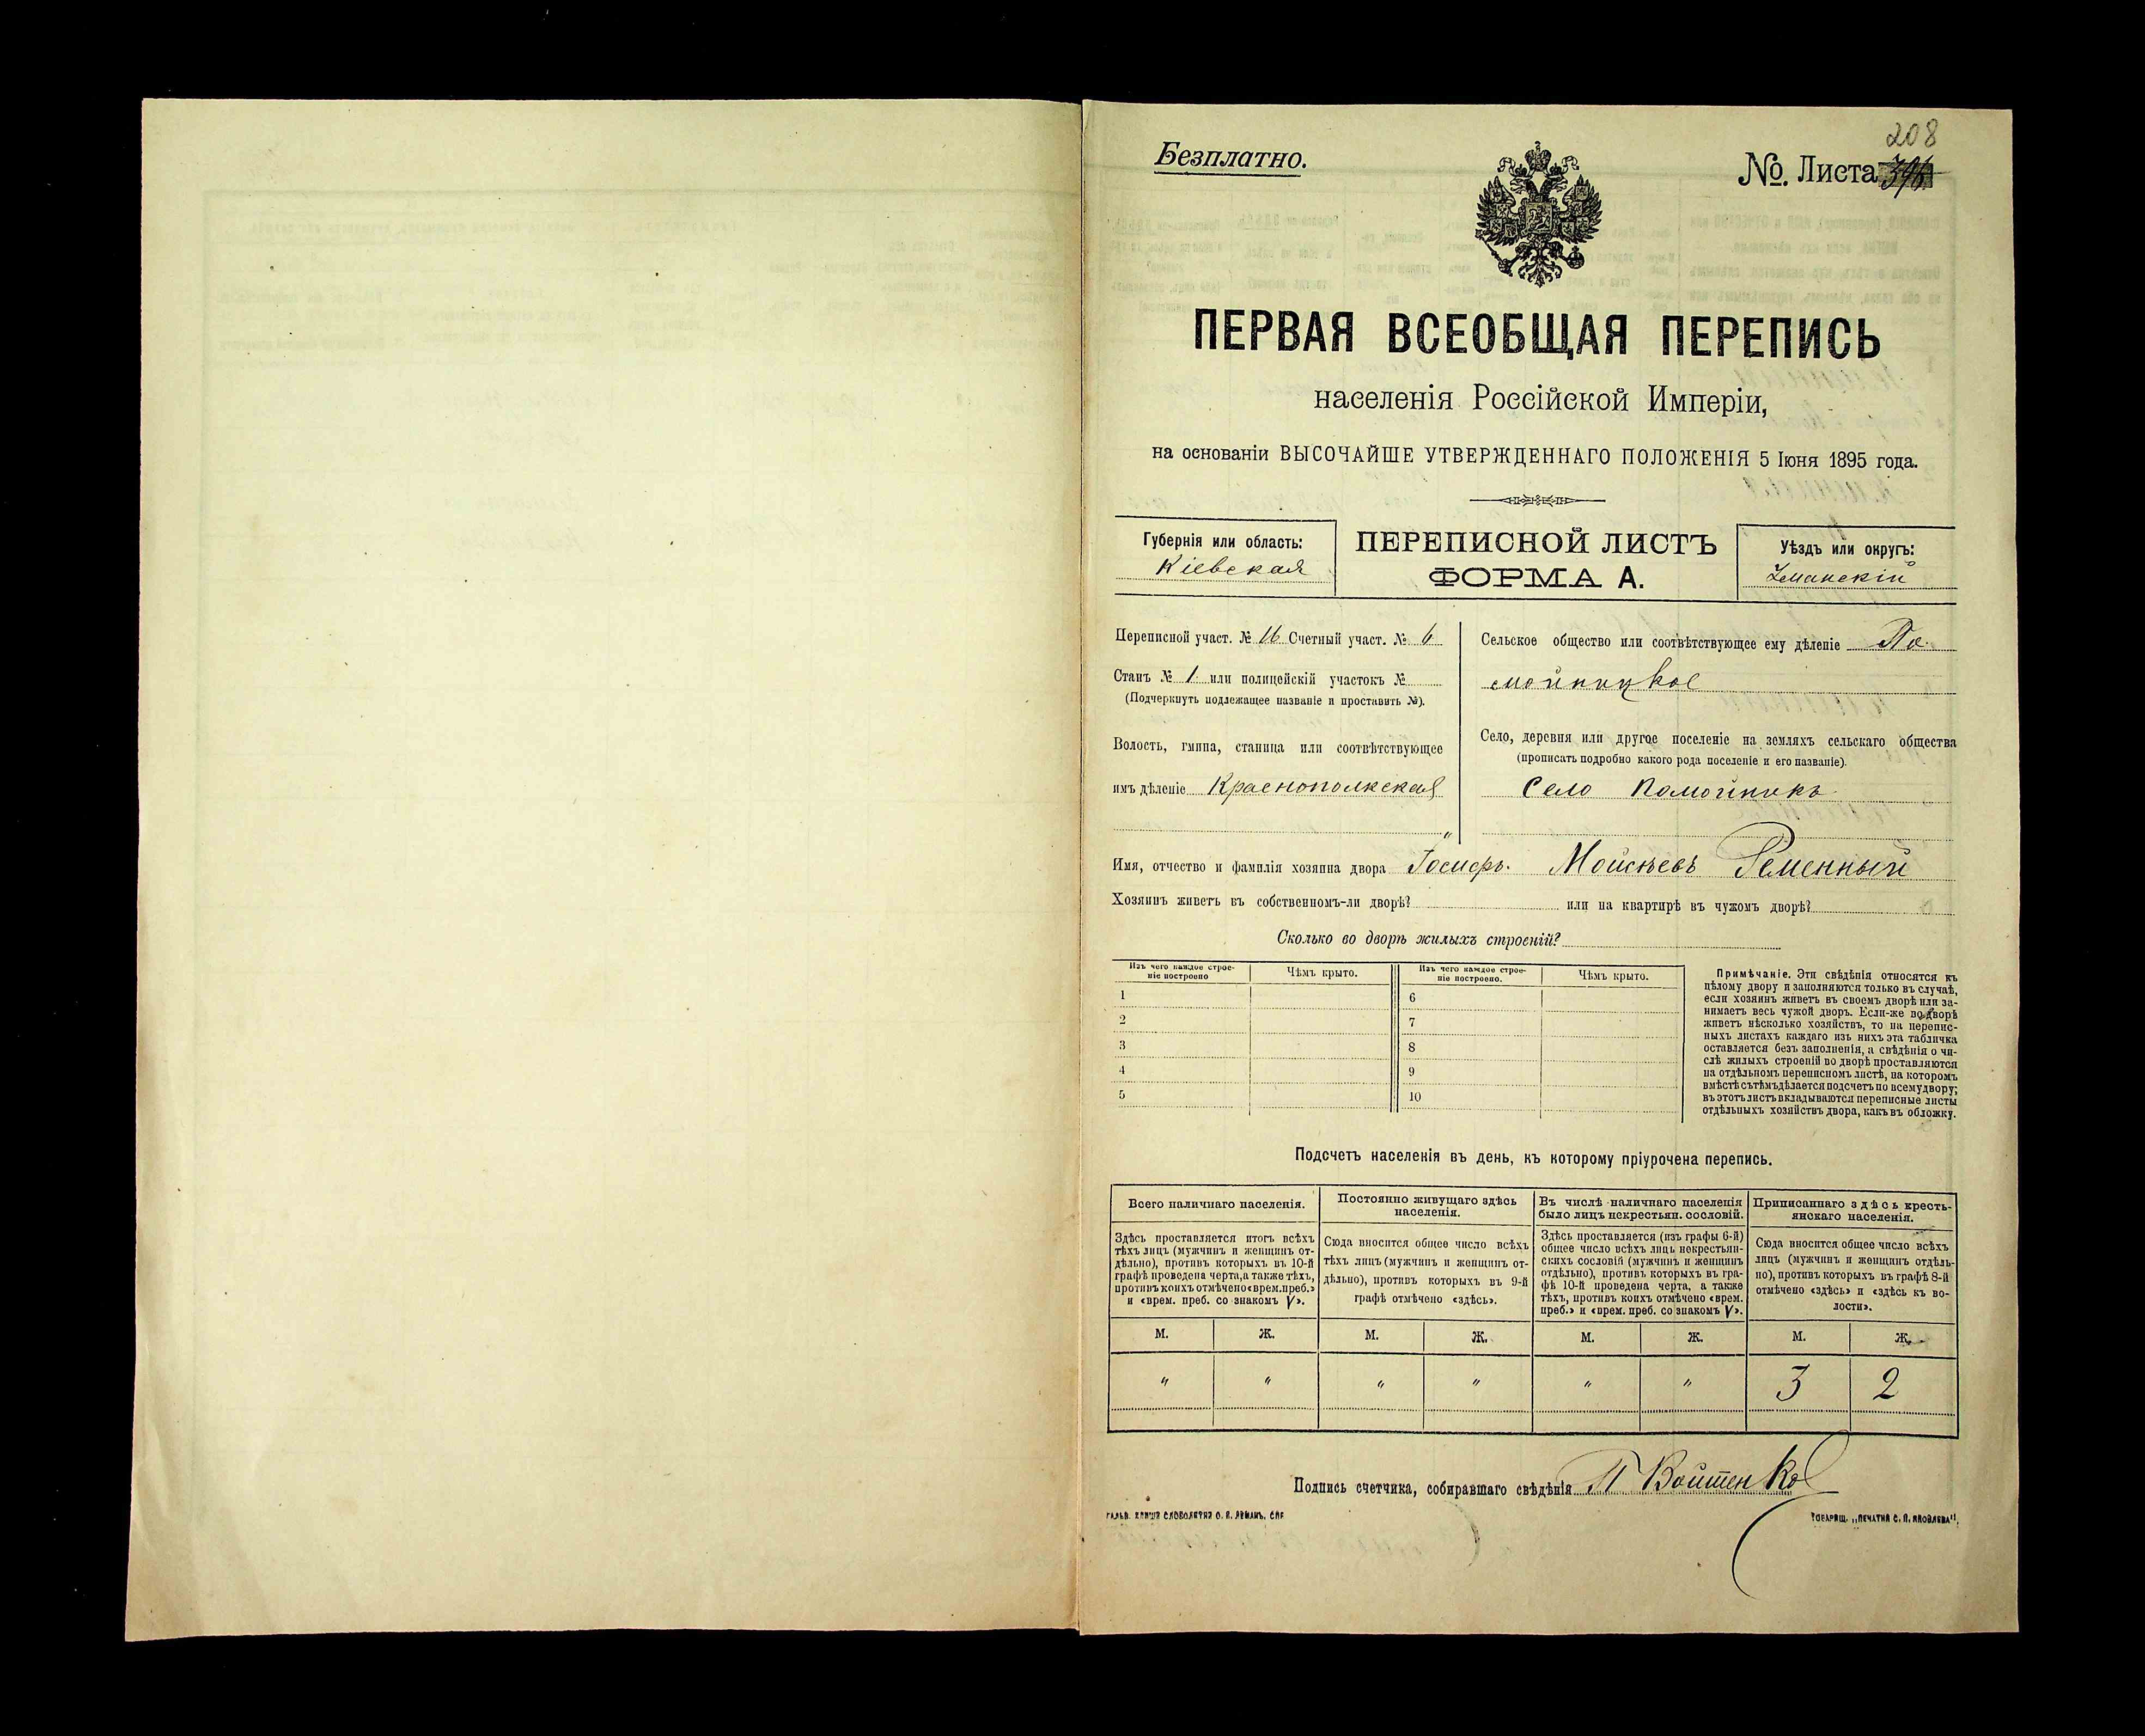 208
Безплатно.
№. Листа 396
ПЕРВАЯ ВСЕОБЩАЯ ПЕРЕПИСЬ
населенія Россійской Имперіи,
на основаніи ВЫСОЧАЙШЕ УТВЕРЖДЕННАГО ПОЛОЖЕНІЯ 5 Іюня 1895 года.
Губернія или область:
Кіевская
ПЕРЕПИСНОЙ ЛИСТЪ
ФОРМА А.
Уѣздъ или округъ:
Уманскій
Переписной участ. № 16 Счетный участ. № 6
Станъ № 1 или полицейскій участокъ №
(Подчеркнуть подлежащее названіе и проставить №).
Волость, гмина, станица или соотвѣтствующее
имъ дѣленіе Краснополкская
"
Сельское общество или соотвѣтствующее ему дѣленіе По-
мойницкое
Село, деревня или другое поселеніе на земляхъ сельскаго общества
(прописать подробно какого рода поселеніе и его названіе).
Село Помойникъ
Имя, отчество и фамилія хозяина двора Іосифъ Моисѣевъ Ременный
Хозяинъ живетъ въ собственномъ-ли дворѣ? или на квартирѣ въ чужомъ дворѣ?
Сколько во дворѣ жилыхъ строеній?
Изъ чего каждое строе-
ніе построено
Чѣмъ крыто.
Изъ чего каждое строе-
ніе построено.
Чѣмъ крыто.
1 6
2 7
3 8
4 9
5 10
Примѣчаніе. Эти свѣдѣнія относятся къ
цѣлому двору и заполняются только въ случаѣ,
если хозяинъ живетъ въ своемъ дворѣ или за-
нимаетъ весь чужой дворъ. Если-же во дворѣ
живетъ нѣсколько хозяйствъ, то на перепис-
ныхъ листахъ каждаго изъ нихъ эта табличка
оставляется безъ заполненія, а свѣдѣнія о чи-
слѣ жилыхъ строеній во дворѣ проставляются
на отдѣльномъ переписномъ листѣ, на которомъ
вмѣстѣ съ тѣмъ дѣлается подсчетъ по всему двору;
въ этотъ листъ вкладываются переписные листы
отдѣльныхъ хозяйствъ двора, какъ въ обложку.
Подсчетъ населенія въ день, къ которому пріурочена перепись.
Всего наличнаго населенія.
Здѣсь проставляется итогъ всѣхъ
тѣхъ лицъ (мужчинъ и женщинъ от-
дѣльно), противъ которыхъ въ 10-й
графѣ проведена черта, а также тѣхъ,
противъ коихъ отмѣчено «врем. преб.»
и «врем. преб. со знакомъ V».
Постоянно живущаго здѣсь
населенія.
Сюда вносится общее число всѣхъ
тѣхъ лицъ (мужчинъ и женщинъ от-
дѣльно), противъ которыхъ въ 9-й
графѣ отмѣчено «здѣсь».
Въ числѣ наличнаго населенія
было лицъ некрестьян. сословій.
Здѣсь проставляется (изъ графы 6-й)
общее число всѣхъ лицъ некрестьян-
скихъ сословій (мужчинъ и женщинъ
отдѣльно), противъ которыхъ въ гра-
фѣ 10-й проведена черта, а также
тѣхъ, противъ коихъ отмѣчено «врем.
преб.» и «врем. преб. со знакомъ V».
Приписаннаго здѣсь кресть-
янскаго населенія.
Сюда вносится общее число всѣхъ
лицъ (мужчинъ и женщинъ отдѣль-
но), противъ которыхъ въ графѣ 8-й
отмѣчено «здѣсь» и «здѣсь къ во-
лости».
М. Ж. М. Ж. М. Ж. М. Ж.
" " " " " " 3 2
Подпись счетчика, собиравшаго свѣдѣнія П Войтенко
ТОВАРИЩ. „ПЕЧАТНЯ С. П. ЯКОВЛЕВА".